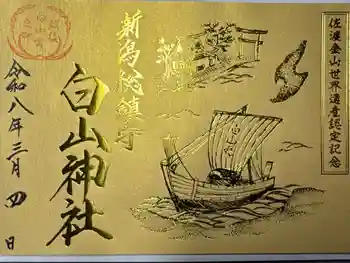 佐渡金山世界遺産認定記念
新潟総鎮守
白山神社
令和八年三月四日